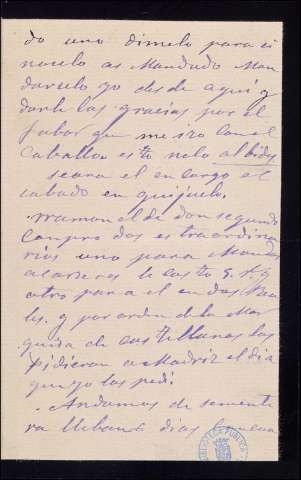 do uno dimelo para si
no selo as Mandado Man
darselo yo desde aqui y
darle las gracias por el
fabor que me izo con el
Caballo esto no lo albides
seara el encargo el
sabado en quijuelo.
rramon el de don segundo
Conpro dos estraordina
rios uno para Mandar
a carreras le costo 5. y
otro para el en dos Rea
les. y por orden de la Mar
quesa de castellanos los
pidieron a Madriz el dia
que yo los pedi.
Andamos de semente
ra llebamos dias buena
BIBLIOTECA PUBLICA